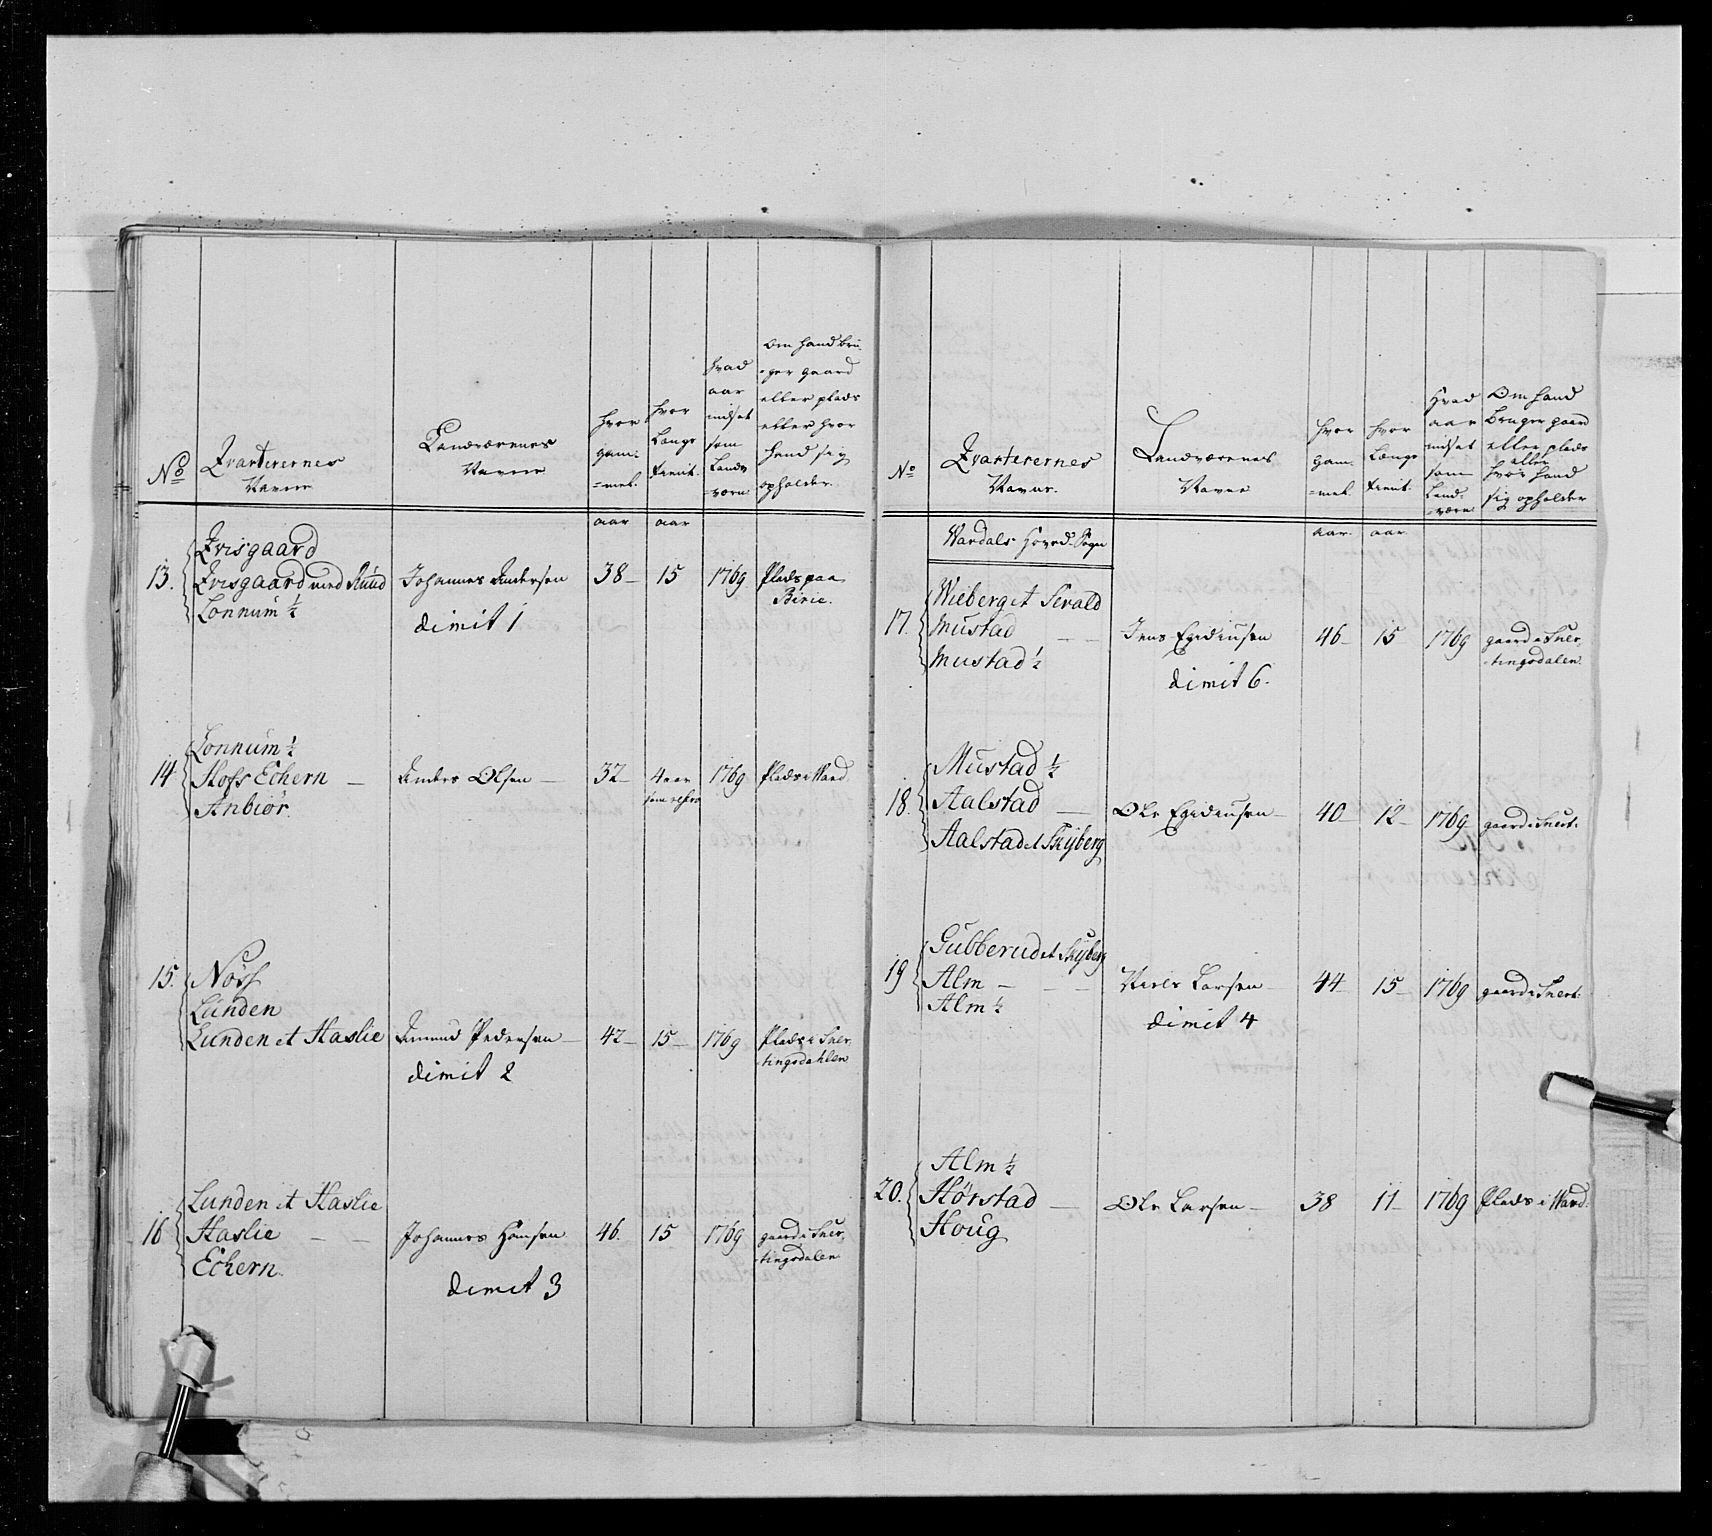 No
Qvarterernes
Navne
Landværenes
Navne
hvor
gam-
=mel.
hvor
Længe
tient.
hvad
aar
indsat
som
Landv
=værn
Om hand bru-
=ger gaard
eller plads
eller hvor
hand sig
opholder.
aar
aar
13.
Qvisgaard
Qvisgaard med Ruud
Lonnum ½
Johannes Andersen
38
15
1769
Plads paa
Birie.
dimit 1
14
Lonnum ½
Stofs Echern
Anbiør.
Anders Olsen
32
4 aar
1769
Plads i Vard
15.
Nøss
Lunden
Lunden et Haslie
Amund Pedersen
42
15
1769
Plads i Sner-
tingsdahlen
dimit 2
16
Lunden et Haslie
Haslie
Echern.
Johannes Hansen
46.
15
1769
gaard i Sner-
tingsdalen
dimit 3
No
Qvarterernes
Navne.
Landværenes
Navne
hvor
Gam-
=mel
hvor
Længe
tient.
Hvad
aar
indsat
som
Land-
=værn
Om hand
bruger gaard
eller plads
eller
hvor hand
sig opholder
Wardals Hoved-Sogn
aar.
aar.
17.
Wieberg et Sivald
Mustad
Mustad ½
Jens Egidiusen
46
15
1769
gaard i Sner-
tingsdalen.
dimit 6.
18.
Mustad ½
Aalstad
Aalstad et Skÿberg
Ole Egidiusen
40
12
1769
gaard i Snert:
19
Gubberud et Skÿberg
Alm
Alm ½
Niels Larsen
44
15
1769
gaard i Snert:
dimit 4
20.
Alm ½
Hørstad
Houg
Ole Larsen
38
11
1769
Plads i Ward.